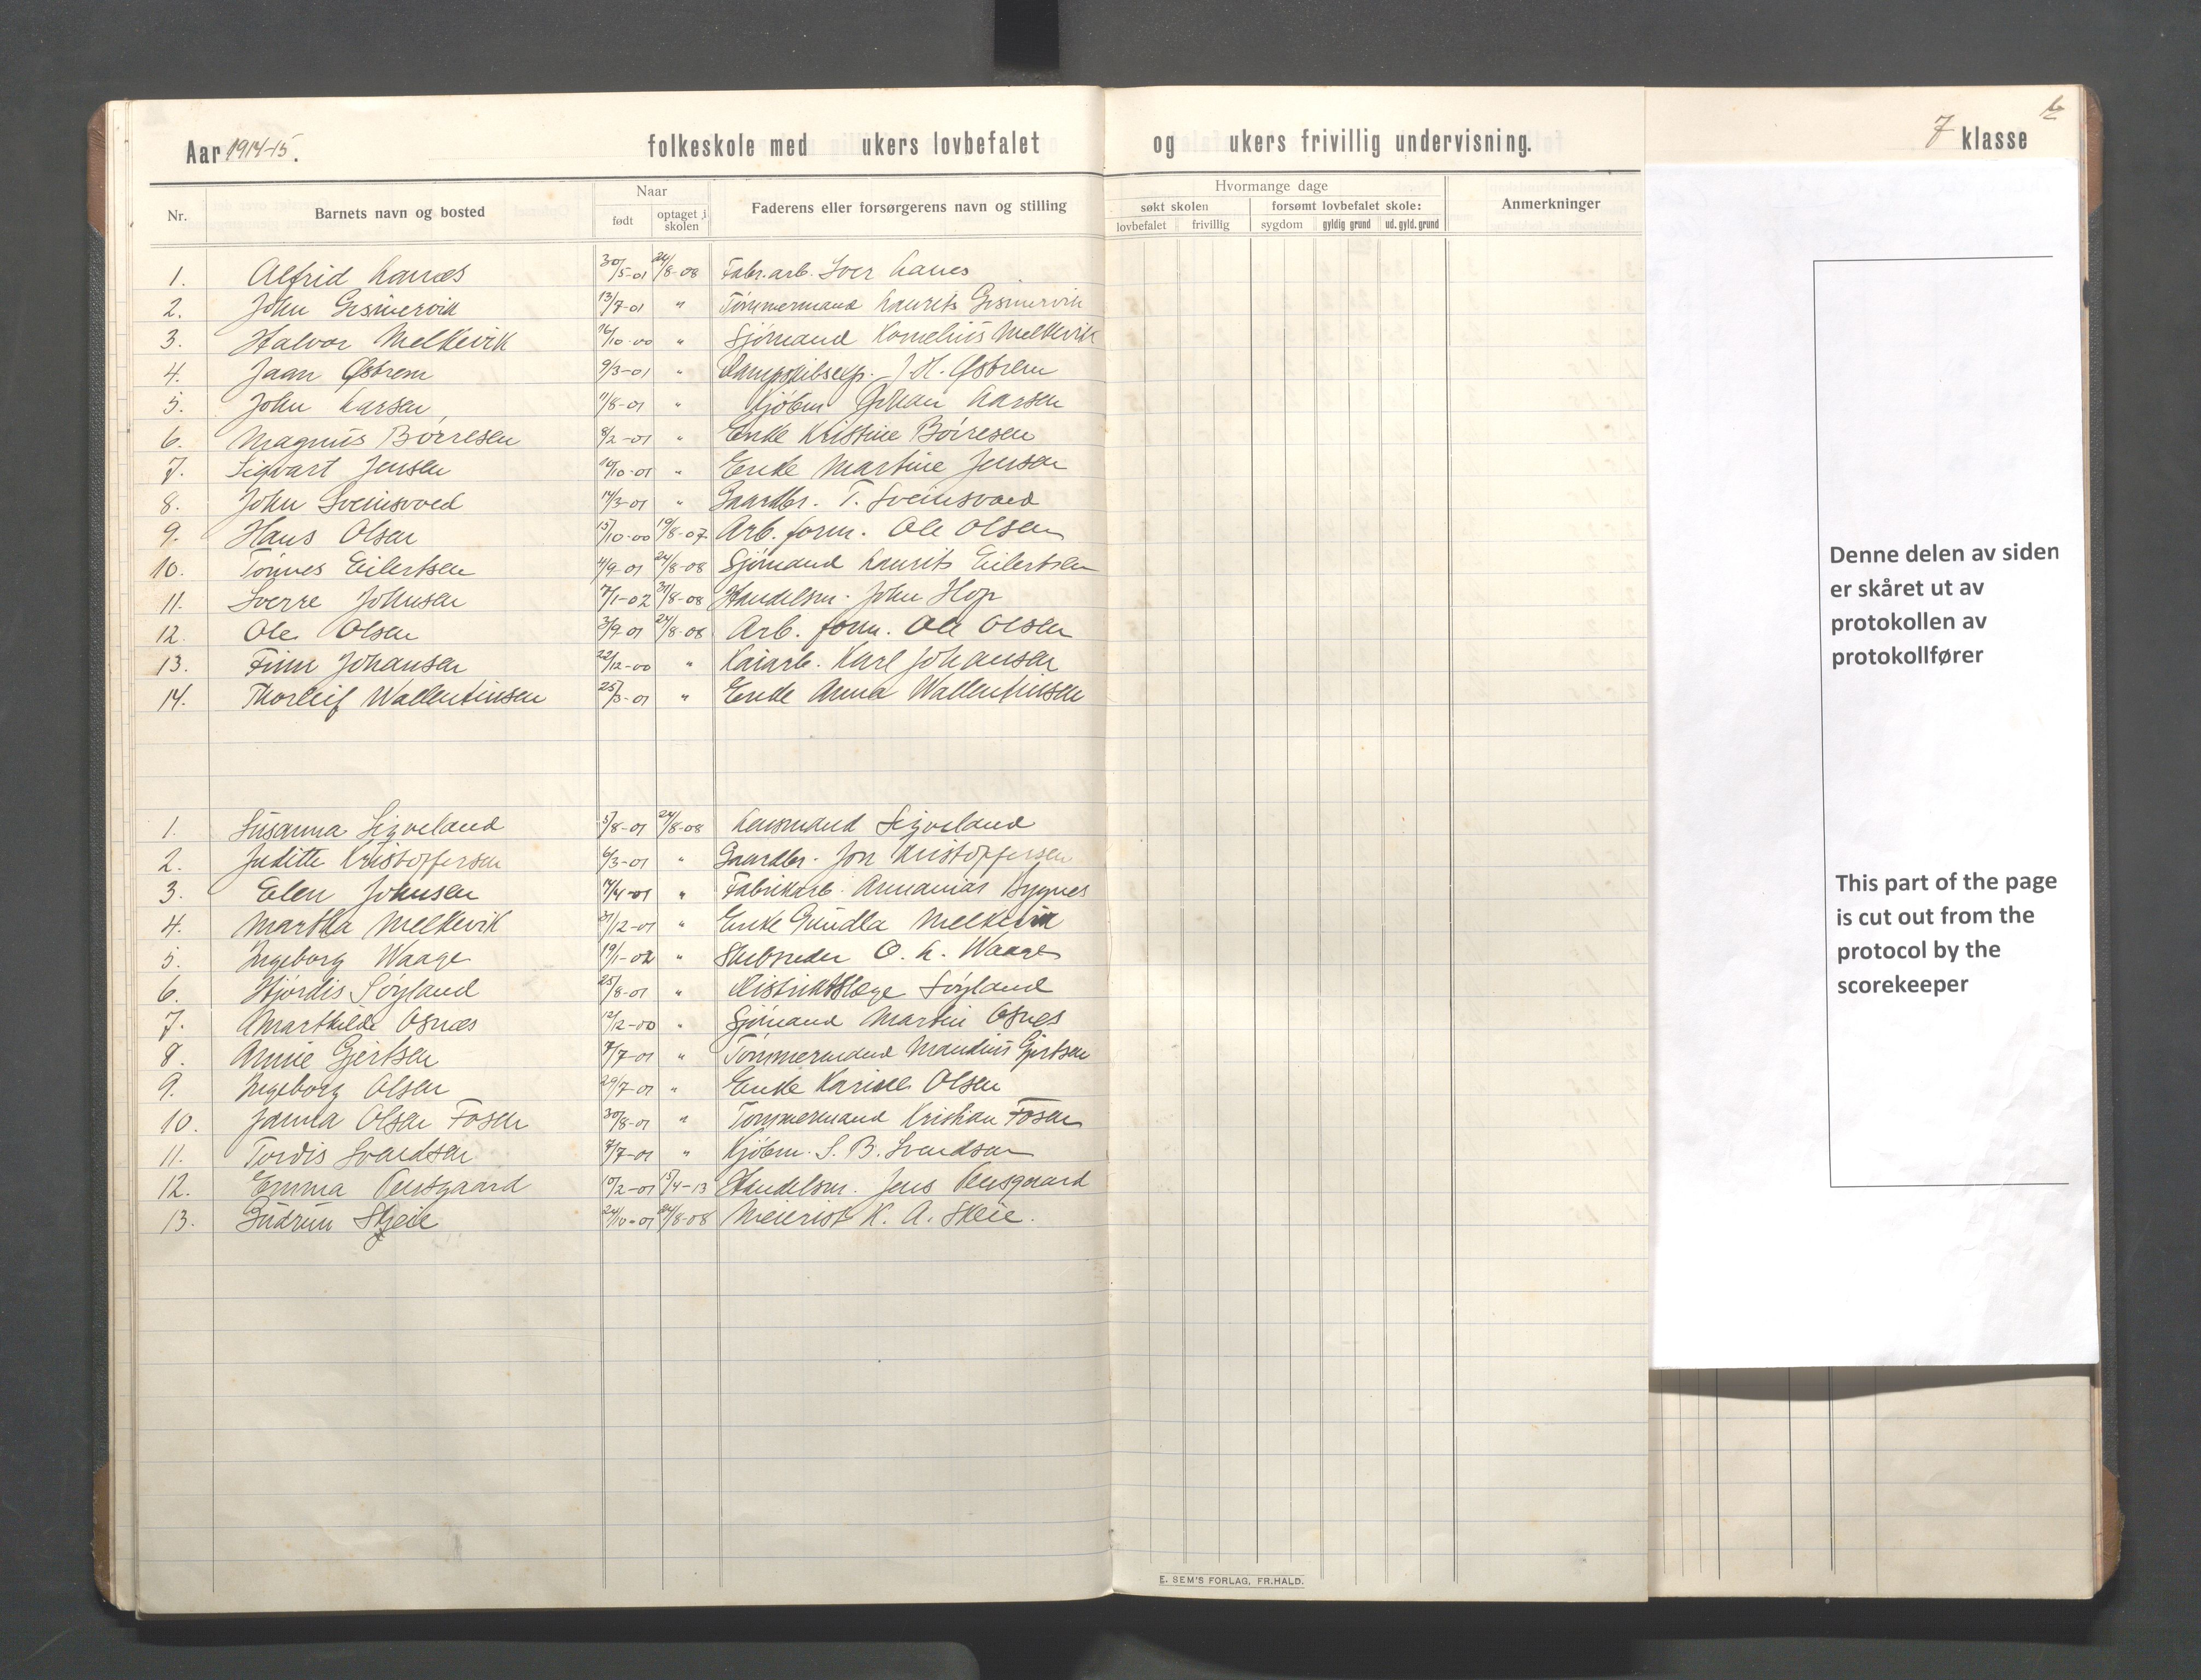 Aar 1914-15. folkeskole med ukers lovbefalet og ukers frivillig undervisning. 7 klasse
Nr. Barnets navn og bosted Naar født optaget i skolen Faderens eller forsørgerens navn og stilling Hvormange dage søkt skolen lovbefalet frivillig forsømt lovbefalet skole: sygdom gyldig grund ud. gyld. grund Anmerkninger
1. Alfrid Lanæs 30/5-01 24/8-08 Fabr.arb. Iver Lanes
2. John Gismervik 13/7-01 " Tømmermand Laurits Gismervik
3. Halvor Melkevik 16/10-00 " Sjømand Kornelius Melkevik
4. Jaan Østrem 9/3-01 " Dampskibsexp. J. H. Østrem
5. John Larsen 11/8-01 " Kjøbm Johan Larsen
6. Magnus Børresen 8/2-01 " Enke Kristine Børresen
7. Sigvart Jensen 10/10-01 " Enke Martine Jensen
8. John Sveinsvoed 14/3-01 " Gaardbr. T. Sveinsvoed
9. Hans Olsen 15/10-00 19/8-07 Arb. form. Ole Olsen
10. Tønnes Eilertsen 4/9-01 24/8-08 Sjømand Laurits Eilertsen
11. Sverre Johnsen 7/1-02 31/8-08 Handelsm. John Hop
12. Ole Olsen 3/9-01 24/8-08 Arb. form. Ole Olsen
13. Finn Johansen 22/12-00 " Kaiarb. Karl Johansen
14. Thorleif Wallentinsen 25/3-01 " Enke Anna Wallentinsen
1. Susanna Sigveland 5/8-01 24/8-08 Lensmand Sigveland
2. Judith Kristoffersen 6/3-01 " Gaardbr. Jon Kristoffersen
3. Elen Johnsen 17/4-01 " Fabrikarb. Annanias Bygnes
4. Martha Melkevik 31/12-01 " Enke Gundla Melkevik
5. Ingeborg Waage 19/1-02 " Skibsreder O. L. Waage
6. Hjørdis Søyland 25/8-01 " Distriktslæge Søyland
7. Marthilde Osnæs 12/12-00 " Sjømand Martin Osnes
8. Annie Gjertsen 7/7-01 " Tømmermand Mandius Gjertsen
9. Ingeborg Olsen 29/7-01 " Enke Karine Olsen
10. Janna Olsen Fosen 30/8-01 " Tømmermand Kristian Fosen
11. Tordis Svendsen 7/7-01 " Kjøbm. S. B. Svendsen
12. Emma Pensgaard 10/2-01 15/4-13 Handelsm. Jens Pensgaard
13. Gudrun Skjeie 24/10-01 24/8-08 Meierist K. A. Skeie.
E. SEM'S FORLAG, FR.HALD.
Denne delen av siden
er skåret ut av
protokollen av
protokollfører
This part of the page
is cut out from the
protocol by the
scorekeeper